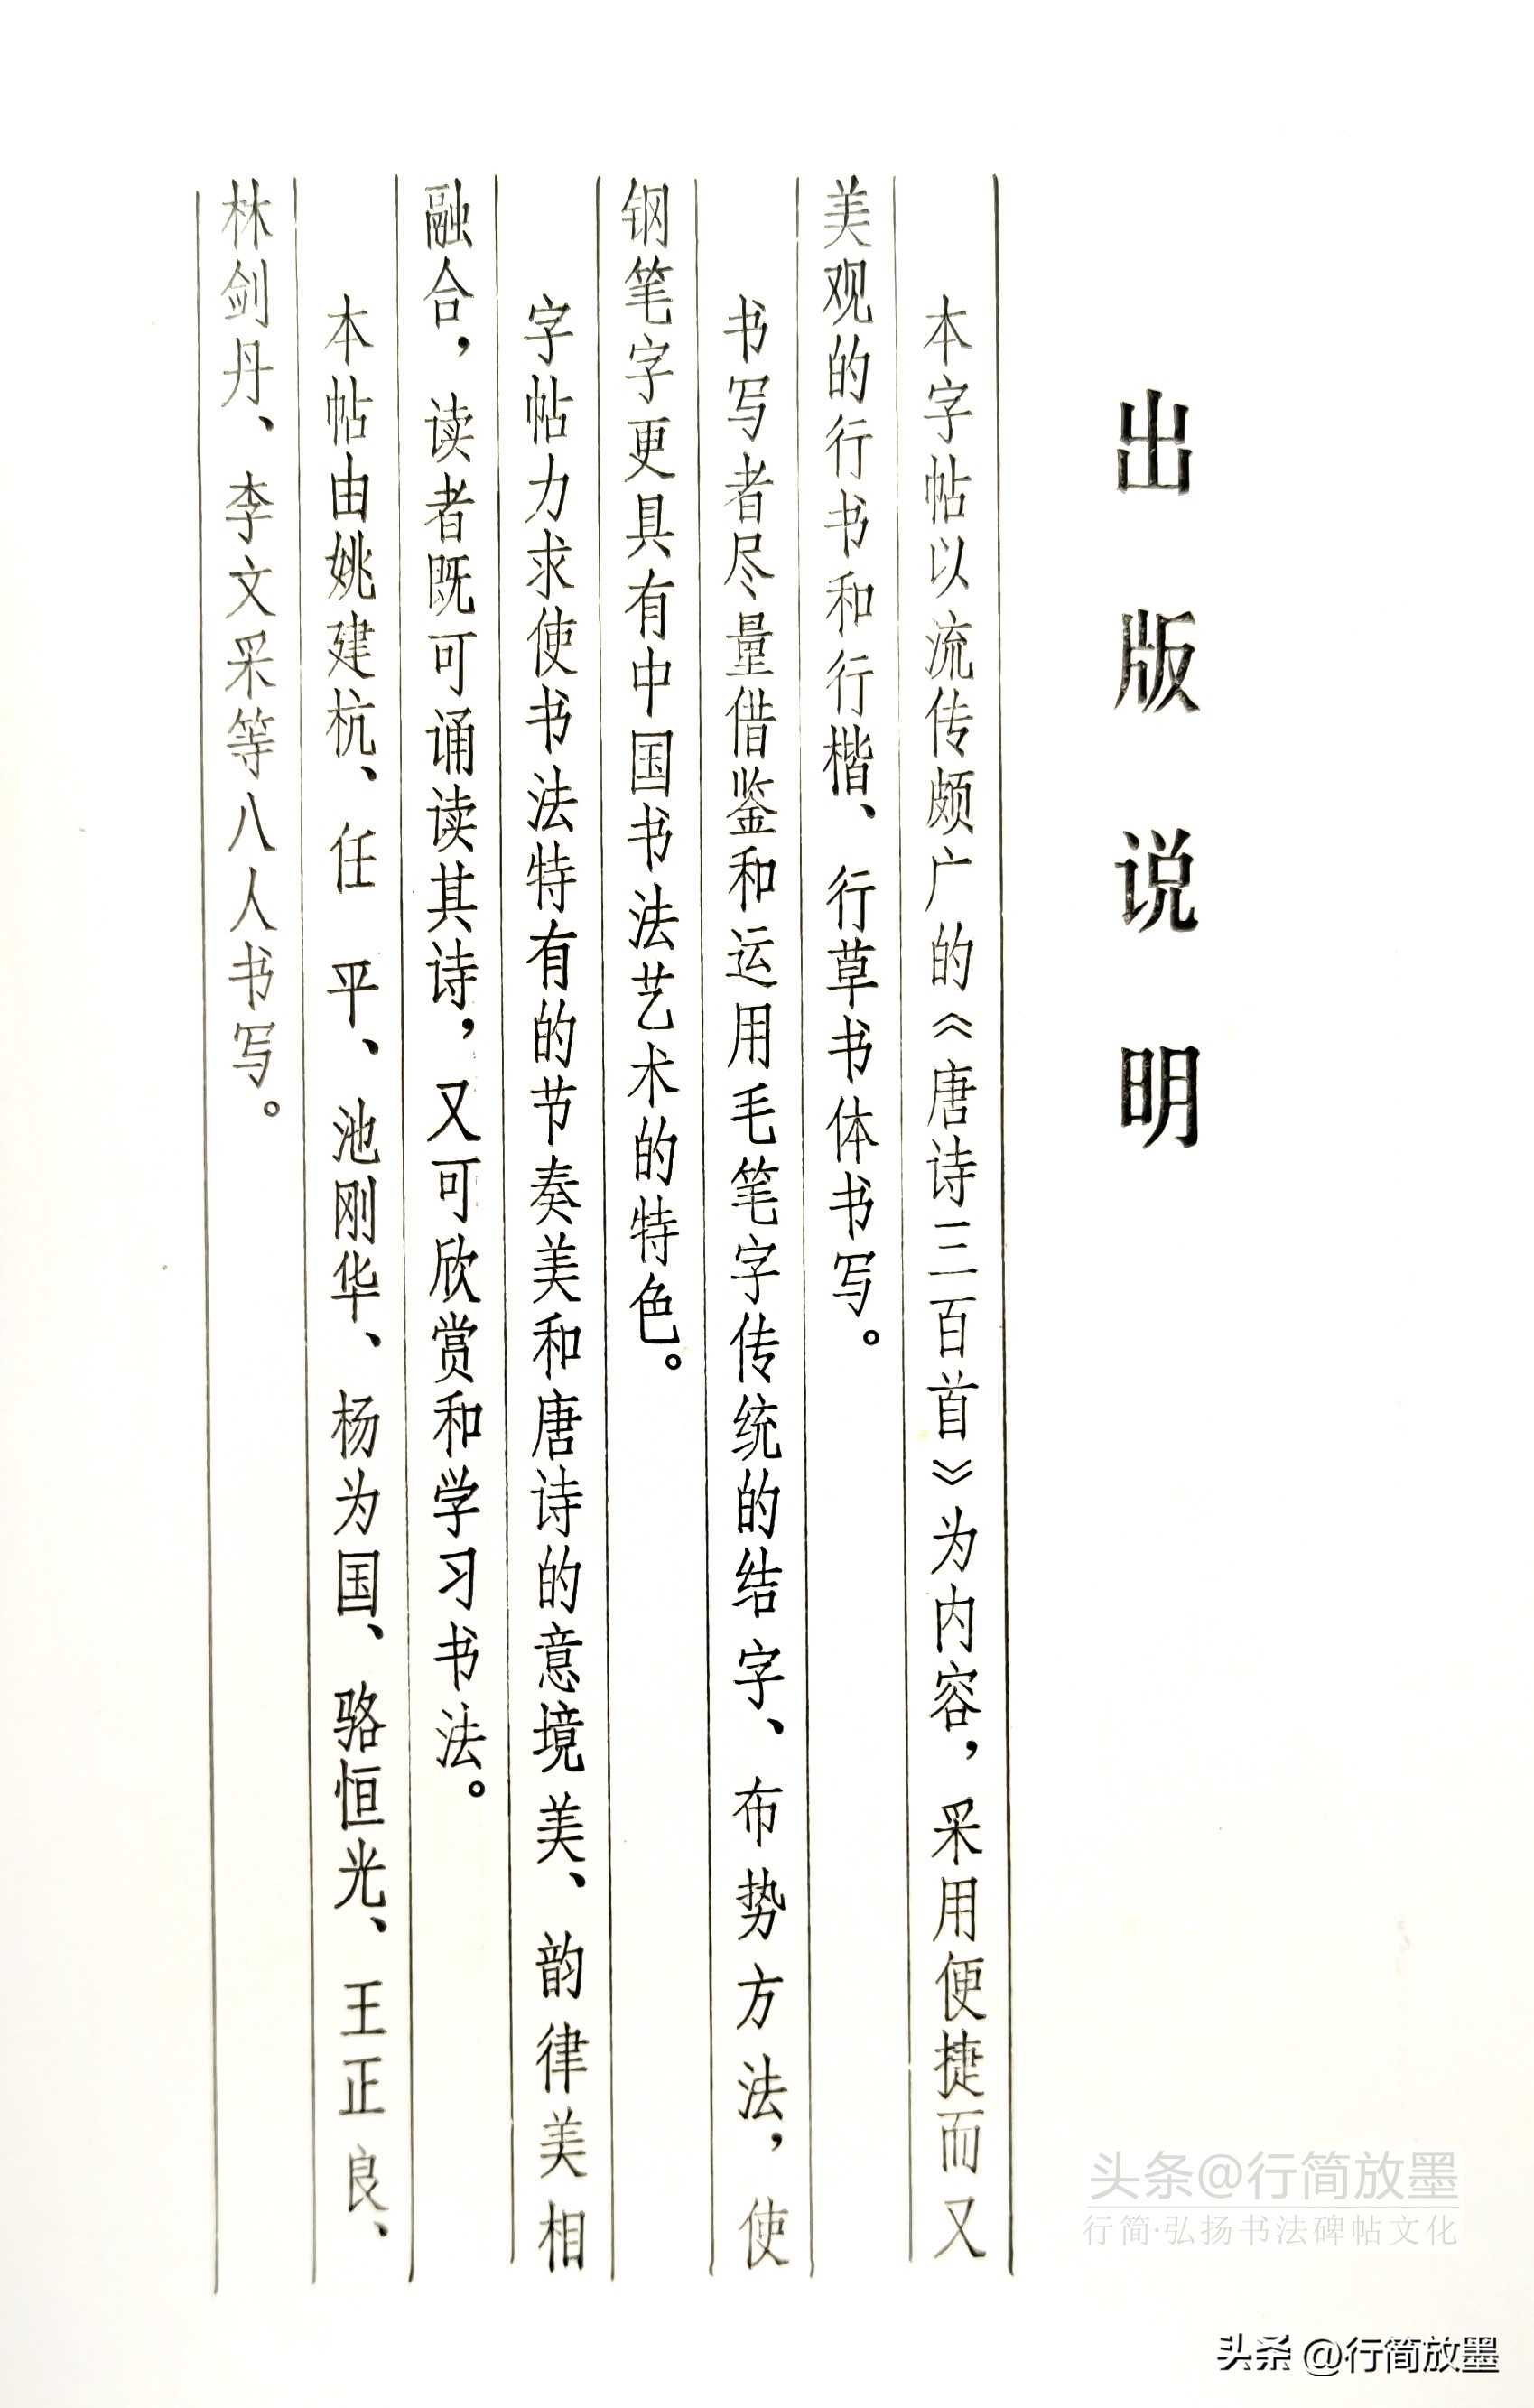 出版说明
本字帖以流传颇广的《唐诗三百首》为内容，采用便捷而又
美观的行书和行楷、行草书体书写。
书写者尽量借鉴和运用毛笔字传统的结字、布势方法，使
钢笔字更具有中国书法艺术的特色。
字帖力求使书法特有的节奏美和唐诗的意境美、韵律美相
融合，读者既可诵读其诗，又可欣赏和学习书法。
本帖由姚建杭、任平、池刚华、杨为国、骆恒光、王正良、
林剑丹、李文采等八人书写。
头条@行简放墨
行简·弘扬书法碑帖文化
头条 @行简放墨